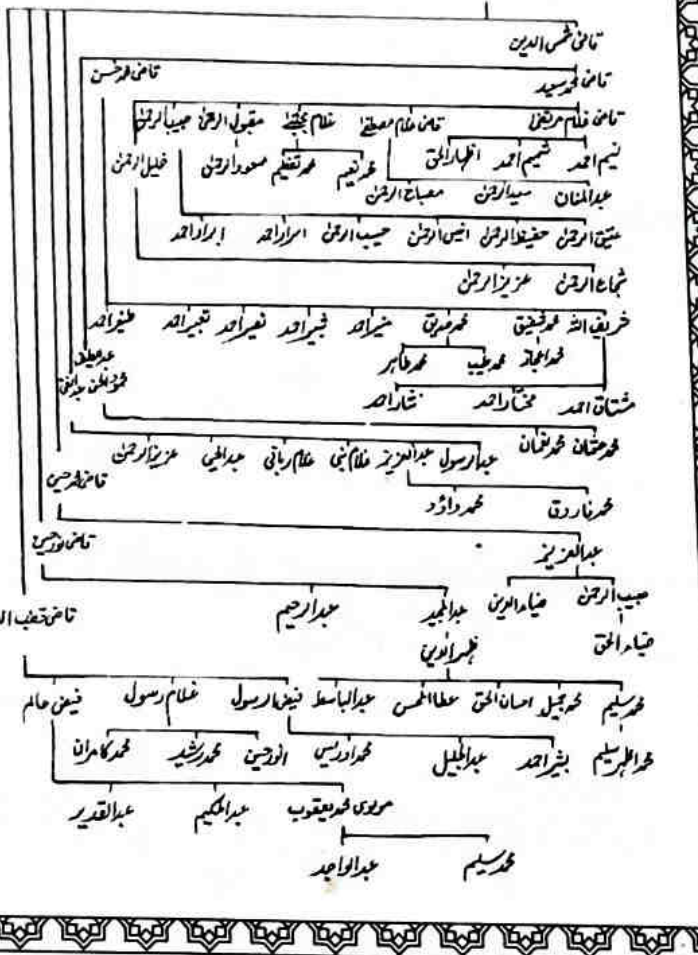 قاضی شمس الدین
قاضی محمد سعید قاضی محمد حسن
قاضی غلام مرتضیٰ قاضی غلام مصطفےٰ غلام مجتبےٰ مقبول الرحمٰن حبیب الرحمٰن
نسیم احمد شمیم احمد اظہار الحق محمد نعیم محمد تعظیم مسعود الرحمٰن خلیل الرحمٰن
عبد المنان سعید الرحمٰن مصباح الرحمٰن
عتیق الرحمٰن حفیظ الرحمٰن انیس الرحمٰن حسیب الرحمٰن اسرار احمد ابرار احمد
شجاع الرحمٰن عزیز الرحمٰن
شریف اللہ محمد شفیق محمد صدیق منیر احمد نصیر احمد
محمد اعجاز محمد طیب محمد طاہر
محمود الحق عبد الغنی
مشتاق احمد مختار احمد نثار احمد
محمد عثمان محمد نعمان
عبد الرسول عبد العزیز غلام نبی غلام ربانی عبد الحئی عزیز الرحمٰن
محمد فاروق محمد داؤد
عبد العزیز قاضی نور حسین
حبیب الرحمٰن ضیاء الدین عبد المجید عبد الرحیم
ضیاء الحق
ظہیر الدین
محمد سلیم محمد جمیل احسان الحق عبد الباسط فیض رسول غلام رسول فیض عالم
محمد اظہر سلیم بشیر احمد عبد الجلیل محمد ادریس انور حسین محمد رشید محمد کامران
مولوی محمد یعقوب عبد الحکیم عبد القدیر
محمد سلیم عبد الواجد